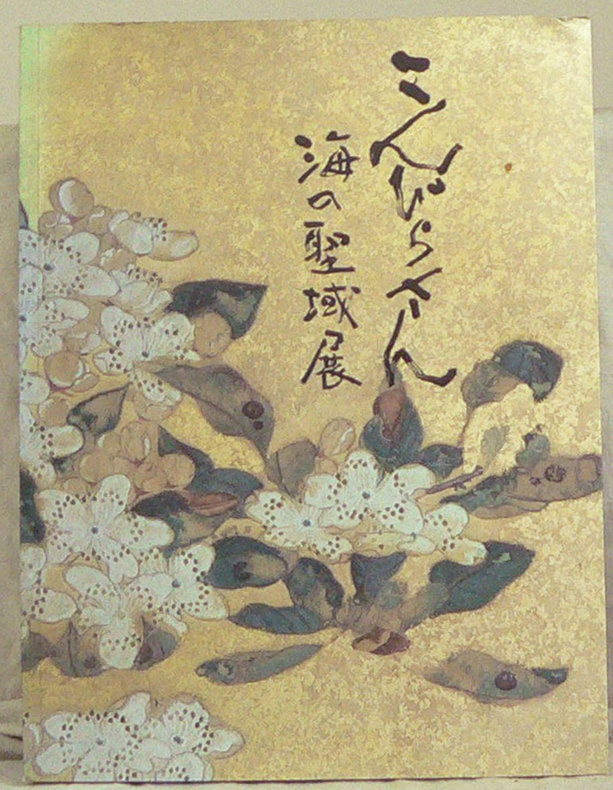 こんぴらさん
海の聖域展